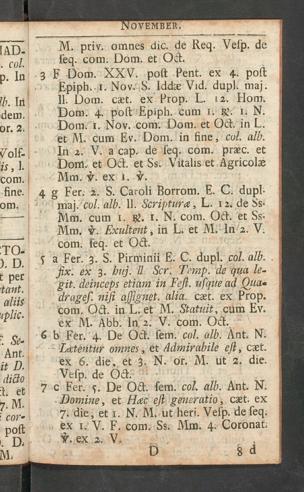 NOVEMBER.
M. priv. omnes dic. de Req. Vesp. de
seq. com. Dom. et Oct.
3 F Dom. XXV. post Pent. ex 4. post
Epiph. 1. Nov. S. Iddæ Vid. dupl. maj.
ll. Dom. cæt. ex Prop. L. 12. Hom.
Dom. 4. post Epiph. cum 1. ℟. 1. N.
Dom. 1. Nov. com. Dom. et Oct. in L.
et M. cum Ev. Dom. in fine, col. alb.
In 2. V. a cap. de seq. com. præc. et
Dom. et Oct. et Ss. Vitalis et Agricolæ
Mm. ℣. ex 1. ℣.
4 g Fer. 2. S. Caroli Borrom. E. C. dupl.
maj. col. alb. ll. Scripturæ, L. 12. de Ss.
Mm. cum 1. ℟. 1. N. com. Oct. et Ss.
Mm. ℣. Exultent, in L. et M. In 2. V.
com. seq. et Oct.
5 a Fer. 3. S. Pirminii E. C. dupl. col. alb.
fix. ex 3. huj. ll. Scr. Temp. de qua le-
git. deinceps etiam in Fest. usque ad Qua-
drages. nisi assignet. alia. cæt. ex Prop.
com. Oct. in L. et M. Statuit, cum Ev.
ex M. Abb. In 2. V. com. Oct.
6 b Fer. 4. De Oct. sem. col. alb. Ant. N.
Lætentur omnes, et Admirabile est, cæt.
ex 6. die, et 3. N. or. M. ut 2. die.
Vesp. de Oct.
7 c Fer. 5. De Oct. sem. col. alb. Ant. N.
Domine, et Hæc est generatio, cæt. ex
7. die, et 1. N. M. ut heri. Vesp. de seq.
ex 1. V. F. com. Ss. Mm. 4. Coronat.
℣. ex 2. V.
D 8 d